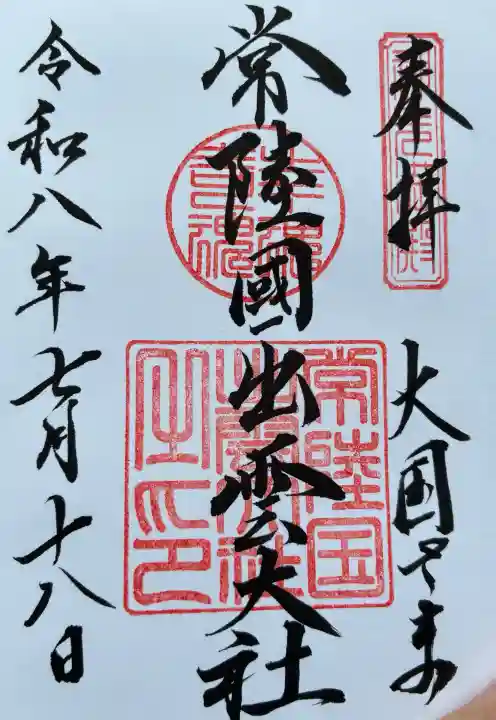 奉拝
大国さま
常陸國出雲大社
常陸国
出雲大社
之印
令和八年七月十八日